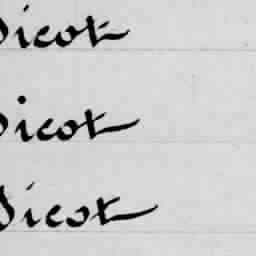 Dicot
Dicot
Dicot